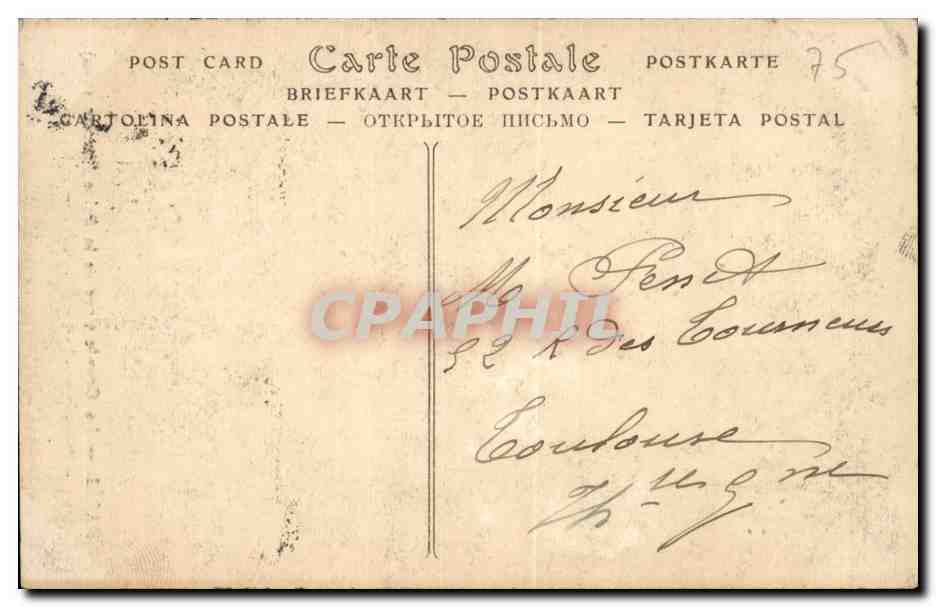 POST CARD Carte Postale POSTKARTE 75
BRIEFKAART — POSTKAART
CARTOLINA POSTALE — ОТКРЫТОЕ ПИСЬМО — TARJETA POSTAL
Monsieur
CPARHIL
52 R des Tourneurs
Toulouse
Hte Gne